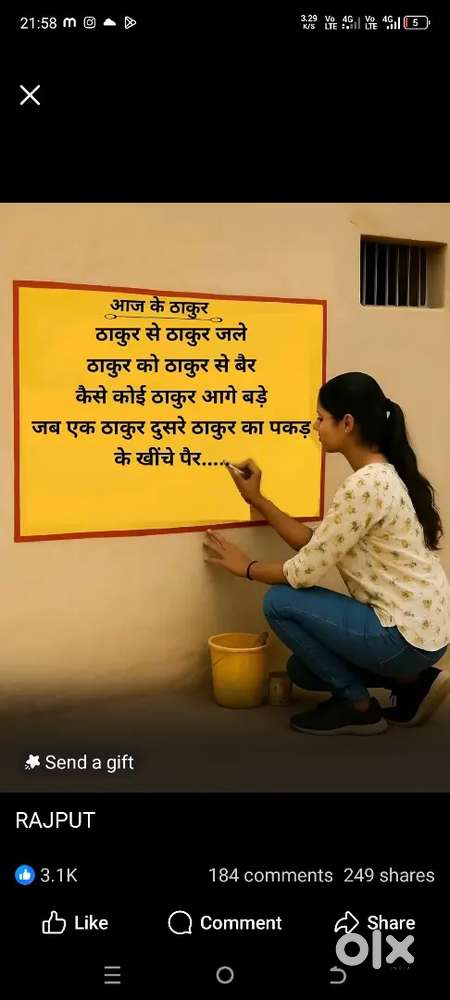 21:58
3.29 K/S Vo LTE 4G Vo LTE 4G 5
आज के ठाकुर
ठाकुर से ठाकुर जले
ठाकुर को ठाकुर से बैर
कैसे कोई ठाकुर आगे बड़े
जब एक ठाकुर दुसरे ठाकुर का पकड़
के खींचे पैर.....
Send a gift
RAJPUT
3.1K 184 comments 249 shares
Like Comment Share
olx
INDIA